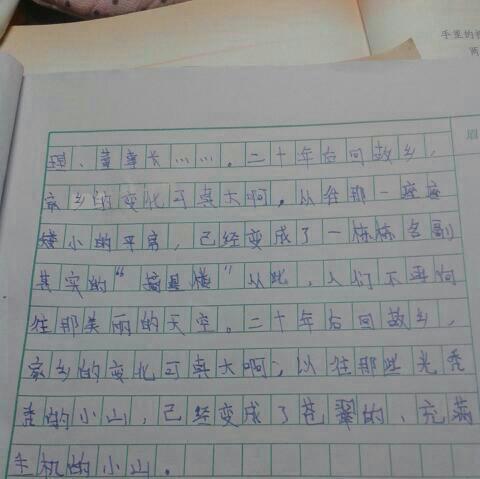 手里的
两
眉
理、董事长……。二十年后回故乡，
家乡的变化可真大啊，以往那一座座
矮小的平房，已经变成了一栋栋名副
其实的“摘星楼”从此，人们不再向
往那美丽的天空。二十年后回故乡，
家乡的变化可真大啊；以往那些光秃
秃的小山，已经变成了苍翠的、充满
生机的小山。